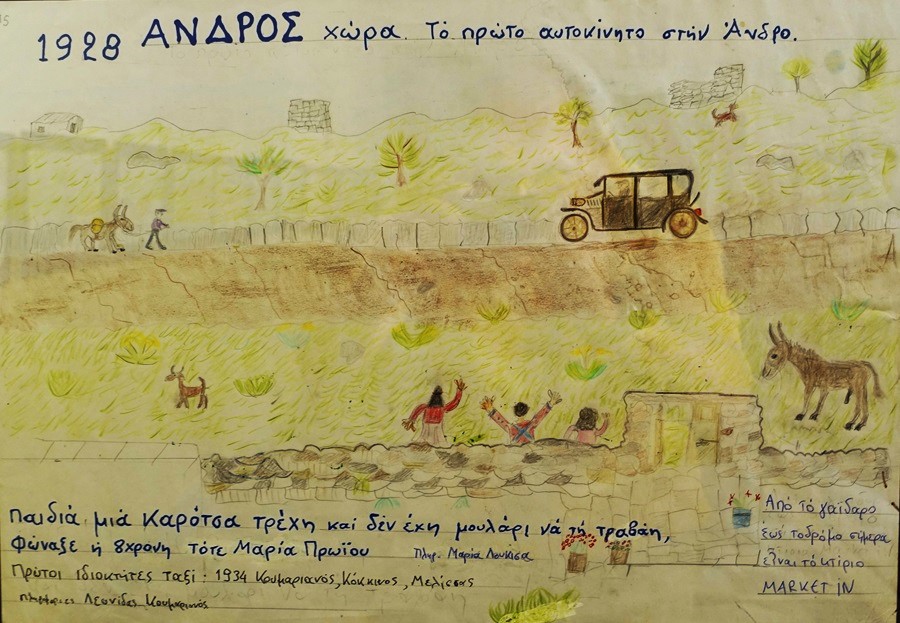 1928 ΑΝΔΡΟΣ χώρα. Τό πρώτο αυτοκίνητο στήν Άνδρο.
Παιδιά μιά Καρότσα τρέχη και δέν έχη μουλάρι νά τή τραβάη,
Φώναξε ή 8χρονη τότε Μαρία Πρωΐου
Πληρ. Μαρία Λουκίσα
Πρώτοι ιδιοκτήτες ταξί: 1934 Κουμαριανός, Κόκκινος, Μελίσσας
Πληροφορίες Λεωνίδας Κουμαριανός
Από τό γαϊδαρο
έως τοδρόμο σήμερα
είναι τό κτίριο
MARKET IN